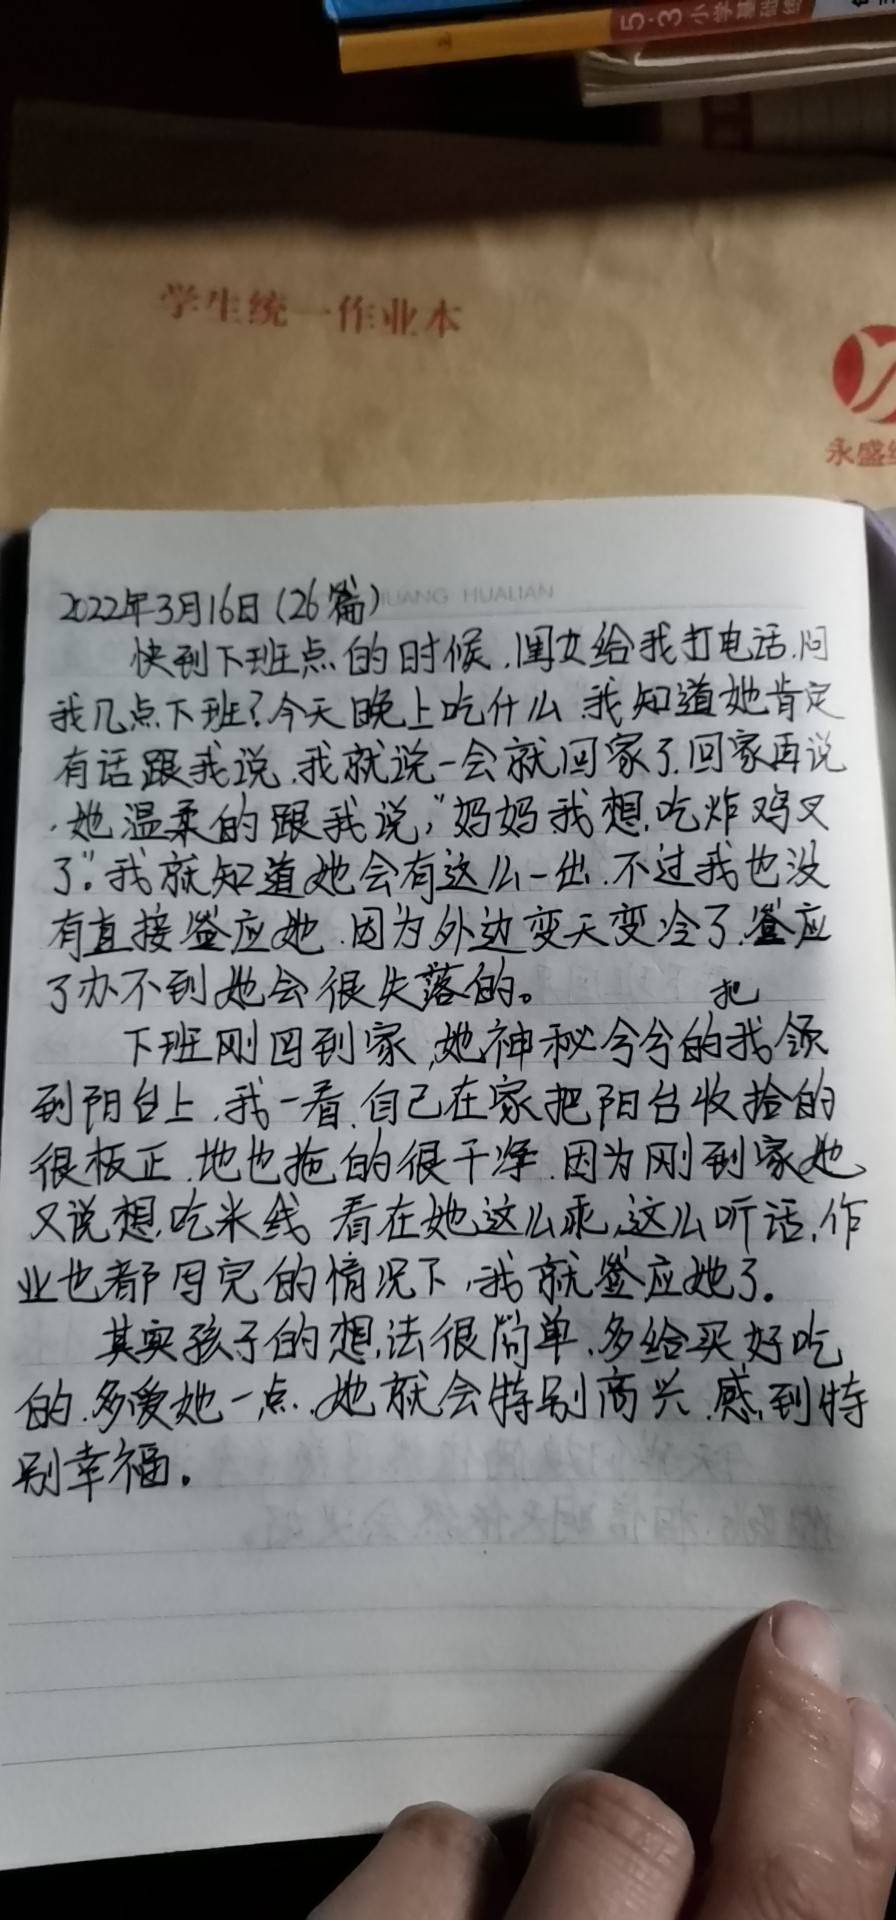 5·3小学基础练
学生统一作业本
永盛
HUANG HUALIAN
2022年3月16日(26篇)
快到下班点的时候,闺女给我打电话,问
我几点下班?今天晚上吃什么,我知道她肯定
有话跟我说,我就说一会就回家了,回家再说
,她温柔的跟我说,“妈妈我想吃炸鸡叉
了”。我就知道她会有这么一出,不过我也没
有直接答应她,因为外边变天变冷了,答应
了办不到她会很失落的。
下班刚回到家,她神秘兮兮的把我领
到阳台上,我一看,自己在家把阳台收拾的
很板正,地也拖的很干净,因为刚到家她
又说想吃米线,看在她这么乖,这么听话,作
业也都写完的情况下,我就答应她了。
其实孩子的想法很简单,多给买好吃
的,多爱她一点,她就会特别高兴,感到特
别幸福。